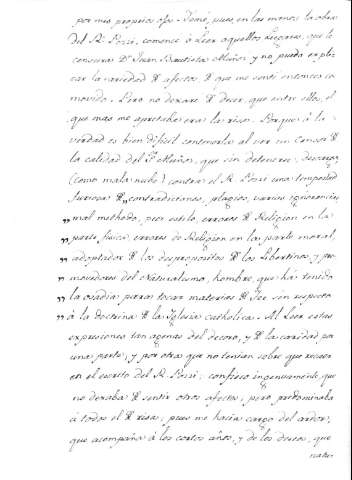 por mis proprios ojos. Tomé, pues, en las manos la obra
del R. Pozzi, comencé à Leer aquellos Lugares, que le
censura Dⁿ Juan Bautista Muñoz y no puedo expli-
car la variedad de afectos de que me sentí entonces co-
movido. Pero no dexare de decir, que entre ellos, el
que mas me apretaba era la risa. Porque à la
verdad es bien dificil contenerla al ver un Censor de
la calidad del Sr. Muñoz, que sin detenerse, descarga
(como mala nube) contra el R. Pozzi una tempestad
furiosa de „ contradiciones, plagios, varias ignorancias,
„ mal methodo, peor estilo, errores de Religion en la
„ parte fisica, errores de Religion en la parte moral,
„ adoptador de los despropositos de los Libertinos, y pro-
„ movedores del Naturalismo, hombre, que hà tenido
„ la osadia para tocar materias de Fee sin respeto
„ à la doctrina de la Iglesia catholica. Al Leer estas
expresiones tan agenas del decoro, y de la caridad por
una parte, y por otra que no tenian sobre que recaer
en el escrito del R. Pozzi; confieso ingenuamente, que
no dexaba de sentir otros afectos, pero predominaba
à todos el de risa; pues me hacia cargo del ardor,
que acompaña à los cortos años, y de los deseos, que
natu-